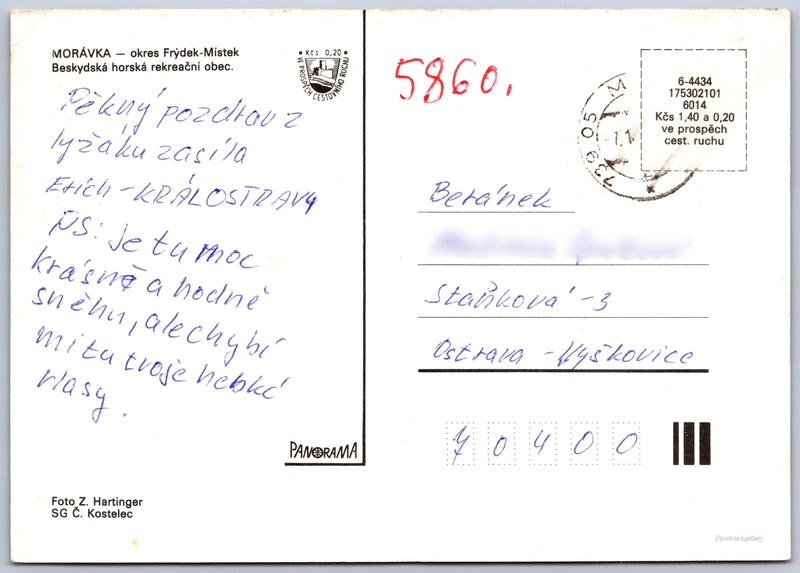 MORÁVKA — okres Frýdek-Místek
Beskydská horská rekreační obec.
Kčs 0,20
VE PROSPĚCH CESTOVNÍHO RUCHU
Pěkný pozdrav z
lyžáku zasíla
Erich - KRÁLOSTRAVY
PS: je tu moc
krásně a hodně
sněhu, ale chybí
mi tu tvoje hebké
vlasy.
PANORAMA
Foto Z. Hartinger
SG Č. Kostelec
5860.
739 05 M
6-4434
175302101
6014
Kčs 1,40 a 0,20
ve prospěch
cest. ruchu
Beránek
Staňková -3
Ostrava - Vyškovice
70400
postcard.gallery